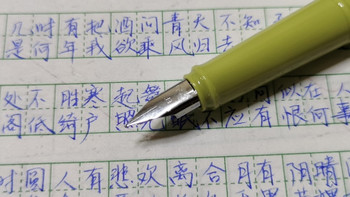 几时有把酒问青天不知
是何年我欲乘风归去
处不胜寒起舞 何似在人
阁低绮户照无眠不应有恨何事
时圆人有悲欢离合月有阴晴